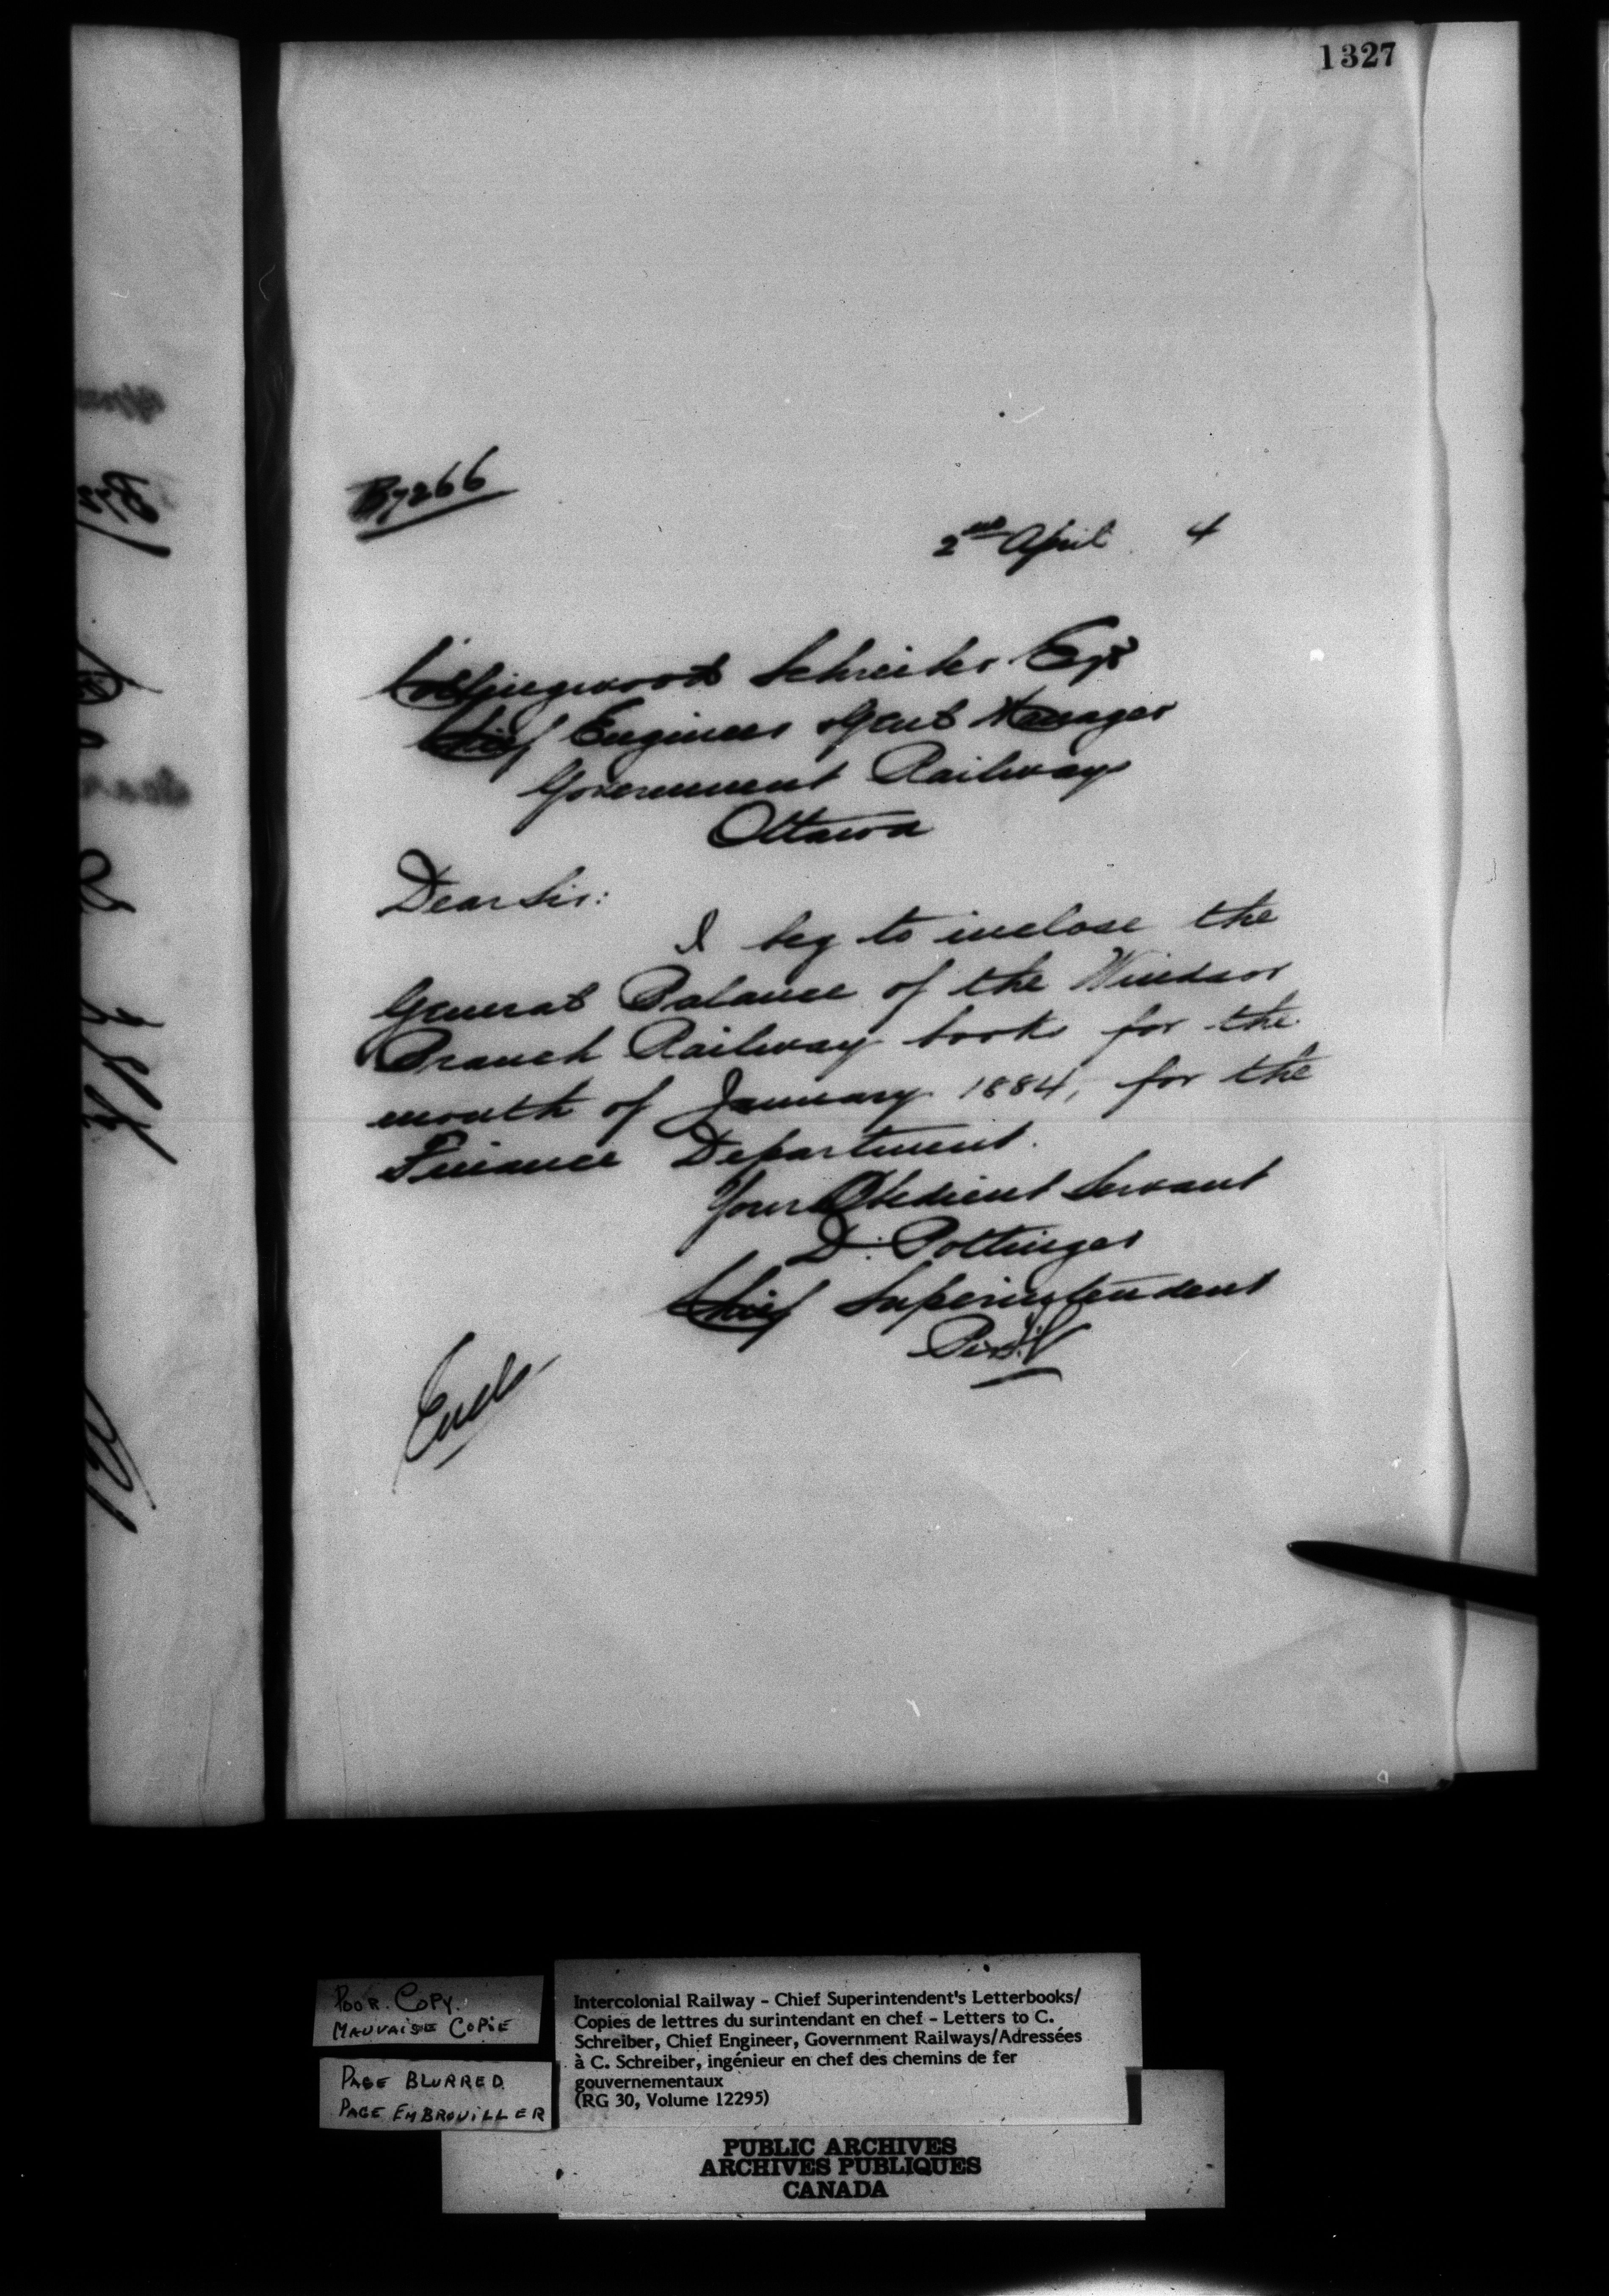 1327
B7266
2nd April 4
Collingwood Schreiber Esqr
Chief Engineer & Genl Manager
Government Railways
Ottawa
Dear Sir:
I beg to inclose the
General Balance of the Windsor
Branch Railway books for the
month of January 1884, for the
Finance Department.
Your Obedient Servant
D. Pottinger
Chief Superintendent
Enclo
POOR. COPY.
MAUVAISE COPIE
PAGE BLURRED
PAGE EMBROUILLER
Intercolonial Railway - Chief Superintendent's Letterbooks/
Copies de lettres du surintendant en chef - Letters to C.
Schreiber, Chief Engineer, Government Railways/Adressées
à C. Schreiber, ingénieur en chef des chemins de fer
gouvernementaux
(RG 30, Volume 12295)
PUBLIC ARCHIVES
ARCHIVES PUBLIQUES
CANADA